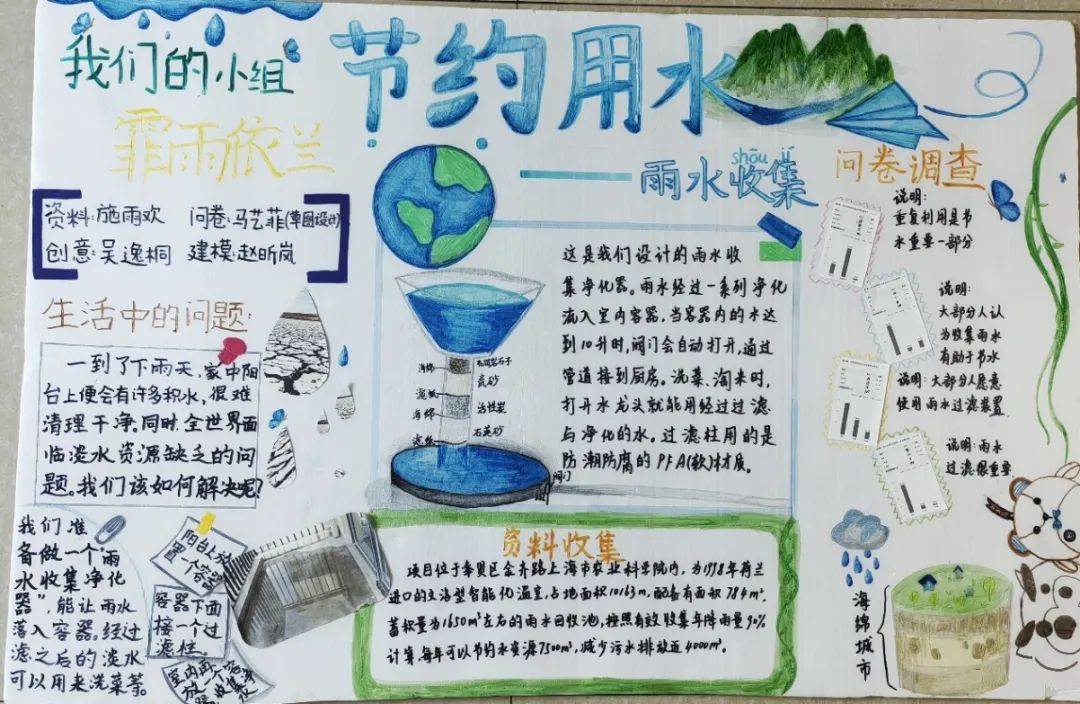 我们的小组
节约用水
霏雨依兰
shōu jí
雨水收集
资料:施雨欢 问卷:马艺菲(草图设计)
创意:吴逸桐 建模:赵昕岚
生活中的问题:
一到了下雨天,家中阳
台上便会有许多积水,很难
清理干净。同时,全世界面
临淡水资源缺乏的问
题。我们该如何解决呢?
我们准
备做一个“雨
水收集净化
器”,能让雨水
落入容器。经过
滤之后的淡水
可以用来洗菜等。
阳台上放
置一个容器
容器下面
接一个过
滤柱。
海绵
滤纸
海绵
滤纸
麦砂
活性炭
石英砂
阀门
这是我们设计的雨水收
集净化器。雨水经过一系列净化
流入室内容器,当容器内的水达
到10升时,阀门会自动打开,通过
管道接到厨房。洗菜、淘米时,
打开水龙头就能用经过过滤
与净化的水。过滤柱用的是
防潮防腐的PFA(软)材质。
资料收集
项目位于奉贤区金齐路上海市农业科学院内,为1998年荷兰
进口的文洛型智能化温室,占地面积10163m,配备有面积784m²,
蓄积量为1650m³左右的雨水回收池,按照有效收集年降雨量90%
计算,每年可以节约水资源7500m³,减少污水排放近4000m³。
问卷调查
说明:
重复利用是节
水重要一部分
说明:
大部分人认
为收集雨水
有助于节水
说明:大部分人愿意
使用雨水过滤装置
说明:雨水
过滤很重要
海绵城市